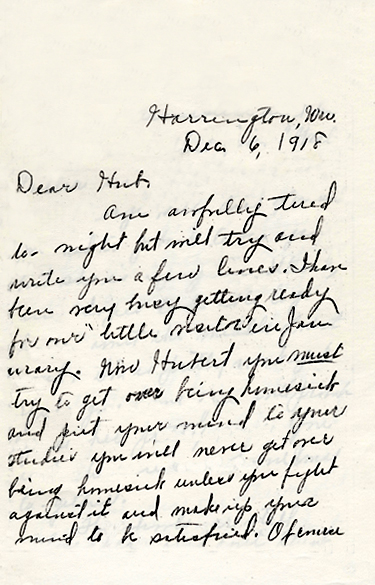 Harrington, Wn.
Dec 6, 1918
Dear Hub.
Am awfully tired
to-night but will try and
write you a few lines. I have
been very busy getting ready
for our little visitor in Jan
urary. Now Hubert you must
try to get over being homesick
and put your mind to your
studies you will never get over
being homesick unless you fight
against it and make up your
mind to be satisfied. Of course